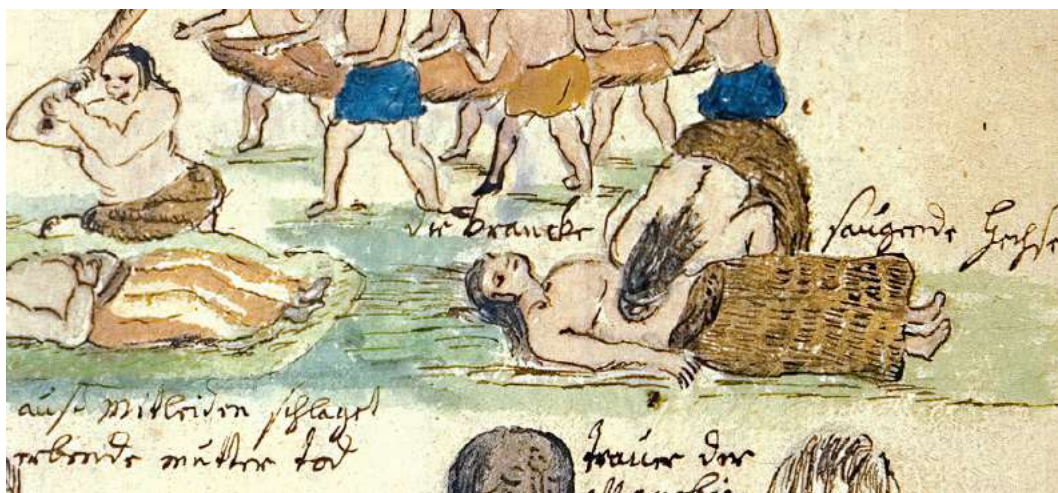 die krancke saugende Hechse
auß mitleiden schlaget
erbende mutter tod
trauer der